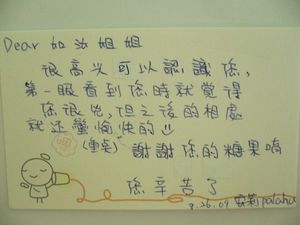 Dear 如姐姐
很高兴可以認識你,
第一眼看到你時就覺得
你很兇,但之後的相處
就还蠻愉快的
謝謝你的糖果唷
你辛苦了
8.26.09 palahu